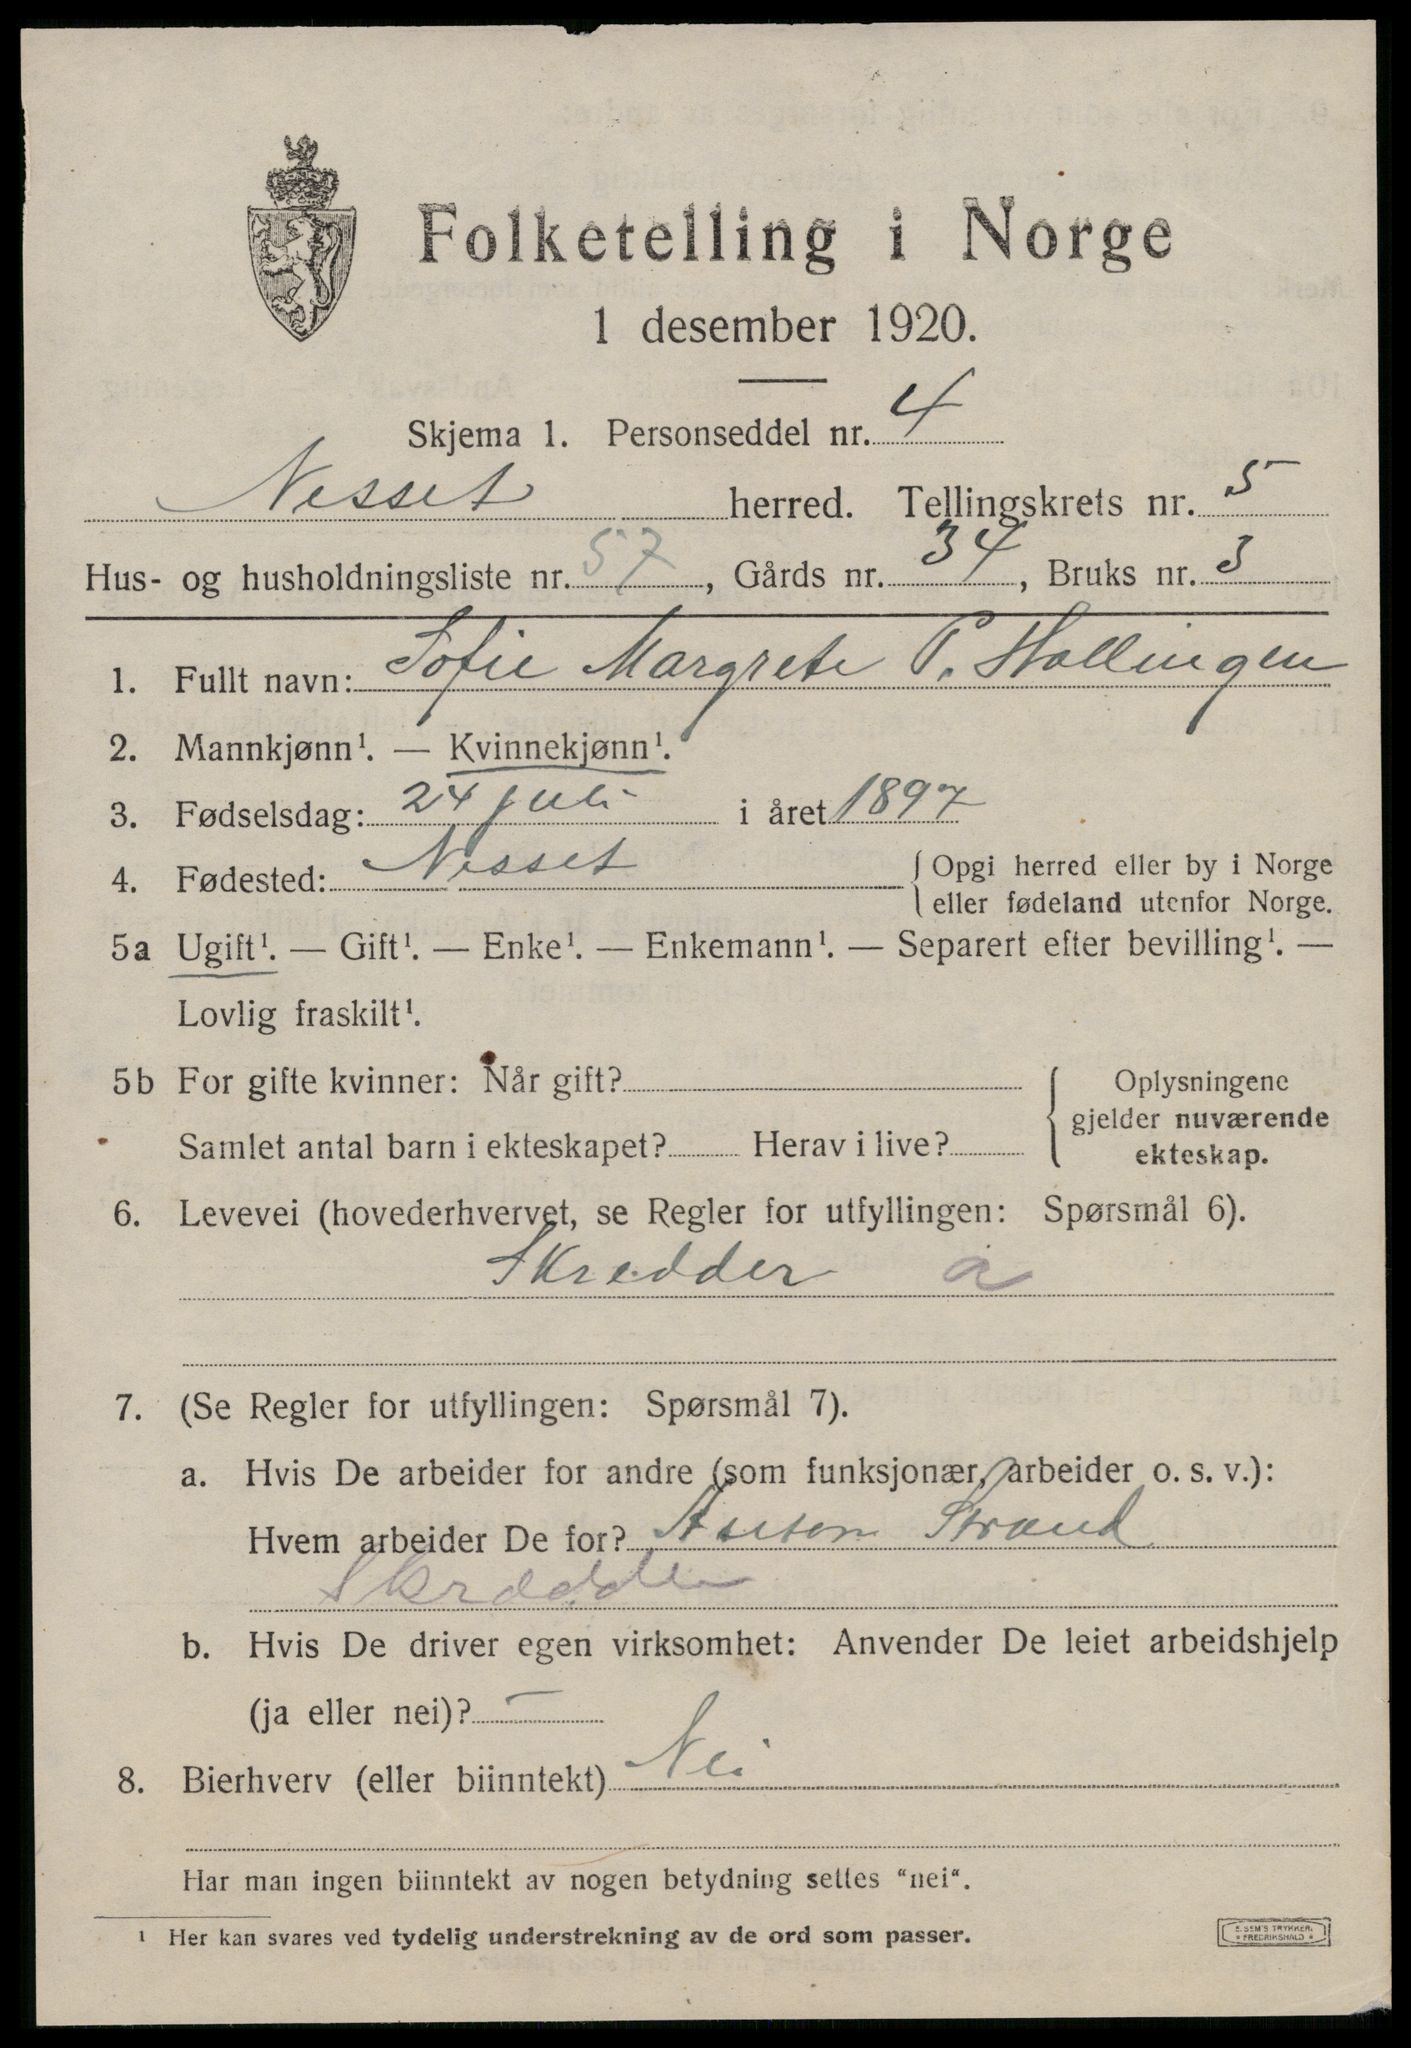 Folketelling i Norge
1 desember 1920.
Skjema 1. Personseddel nr. 4
Nesset herred. Tellingskrets nr. 5
Hus- og husholdningsliste nr. 57, Gårds nr. 34, Bruks nr. 3
1. Fullt navn: Sofie Margrete P. Hallingen
2. Mannkjønn¹. — Kvinnekjønn¹.
3. Fødselsdag: 24 juli i året 1897
4. Fødested: Nesset { Opgi herred eller by i Norge
eller fødeland utenfor Norge.
5a Ugift¹. — Gift¹. — Enke¹. — Enkemann¹. — Separert efter bevilling¹. —
Lovlig fraskilt¹.
5b For gifte kvinner: Når gift?
Samlet antal barn i ekteskapet? Herav i live?
{ Oplysningene
gjelder nuværende
ekteskap.
6. Levevei (hovederhvervet, se Regler for utfyllingen: Spørsmål 6).
Skredder a
7. (Se Regler for utfyllingen: Spørsmål 7).
a. Hvis De arbeider for andre (som funksjonær, arbeider o. s. v.):
Hvem arbeider De for? Anton Strand
Skrædder
b. Hvis De driver egen virksomhet: Anvender De leiet arbeidshjelp
(ja eller nei)? —
8. Bierhverv (eller biinntekt) Nei
Har man ingen biinntekt av nogen betydning settes "nei".
¹ Her kan svares ved tydelig understrekning av de ord som passer.
E. SEM'S TRYKKERI
* FREDRIKSHALD *